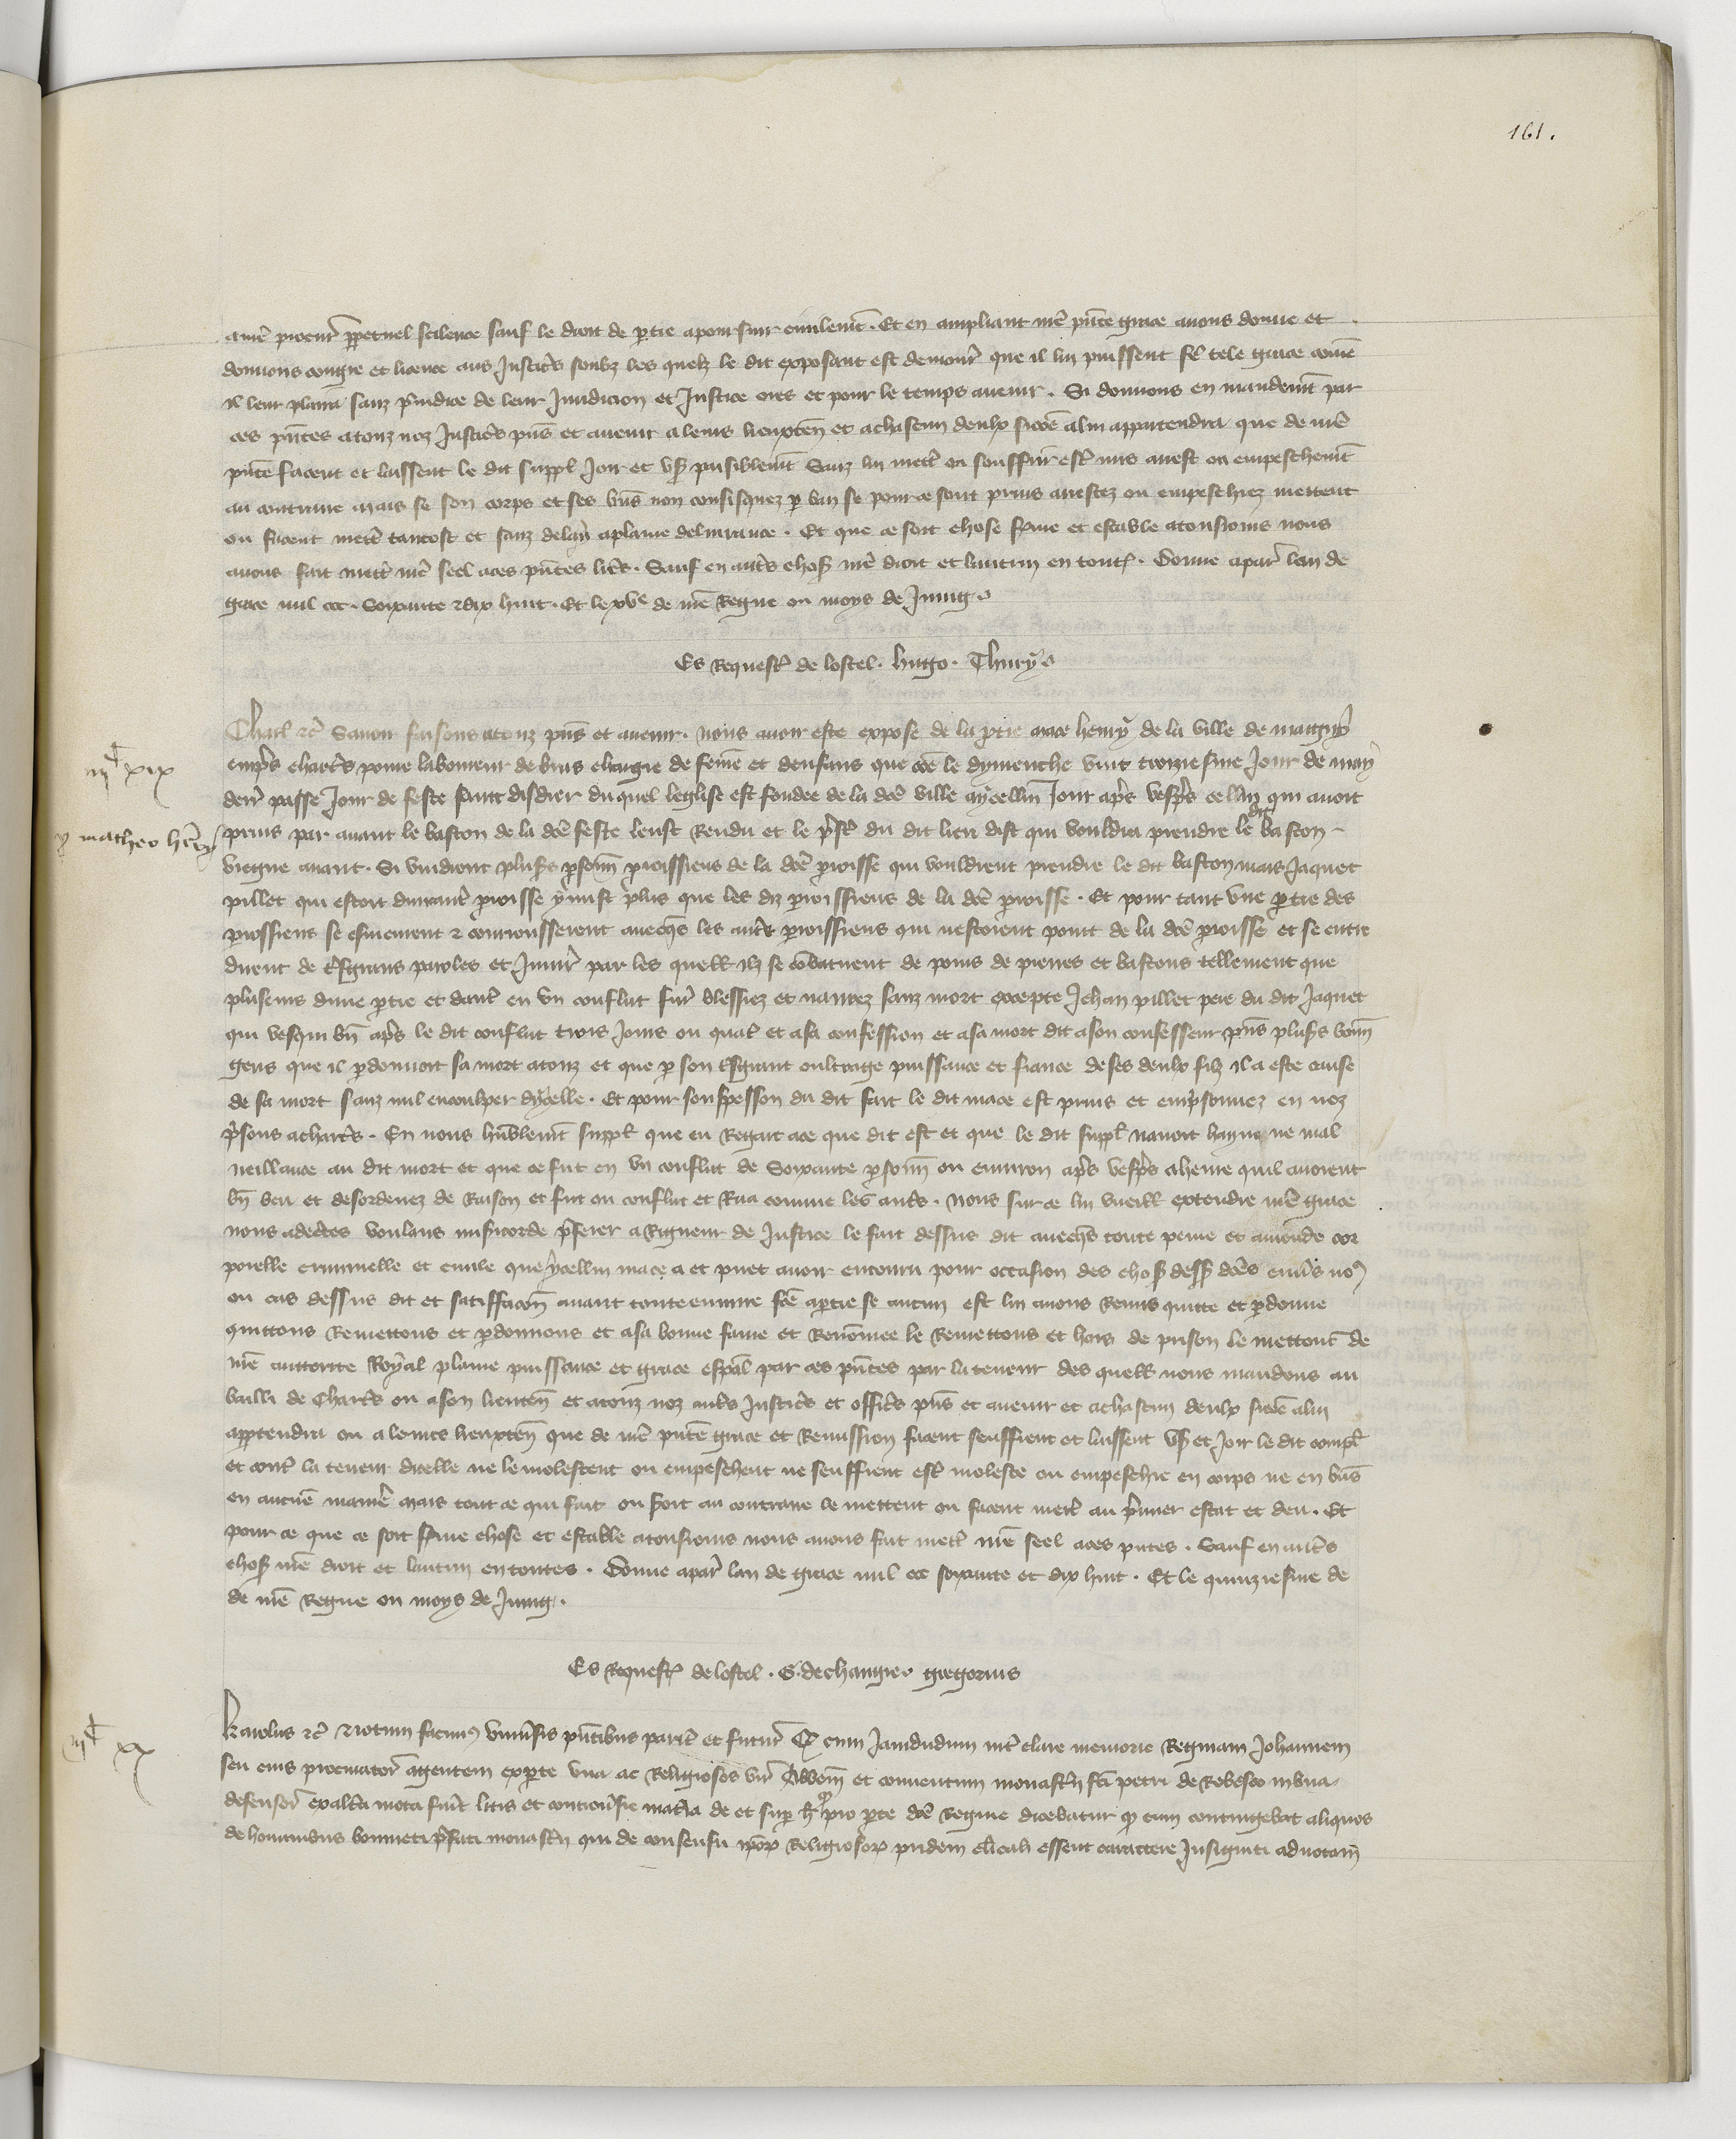 161.
a nr̄e procur̄ p̱petuel scilence sauf le droit de p̱tie a poursuir civilemēt. Et en ampliant nr̄e pn̄te grace avons donne et
donnons congie et licence aus Justic̄s soubz les quelz le dit exposant est demour̄ que il lui puissent fē tele grace com̄e
il leur plaira sanz p̄iudice de leur Juridicion et Justice ores et pour le temps avenir. Si donnons en mandemēt par
ces pn̄tes a touz noz Justic̄s pn̄s et avenir a leurs lieuxten̄ et a chascun deulx sicōe a lui appartendra que de nr̄e
pn̄te facent et laissent le dit suppl̄ Joir et us̄ paisiblemēt Sanz lui mettr̄ ou souffrir estr̄ mis arrest ou empeschemēt
au contraire Mais se son corps et ses biēs non confisquez p̱ ban se pour ce sont prins arrestez ou empeschiez mettent
ou facent mettr̄ tantost et sanz delay a plaine delivrance. Et que ce soit chose ferme et estable a tousiours nous
avons fait mettr̄ nr̄e seel a ces pn̄tes lr̄es. Sauf en autr̄s chos̄ nr̄e droit et lautrui en toutes. Donne a par̄ lan de
grace mil ccc. Soixante & dix huit. Et le xve de nr̄e Regne ou moys de Juing.
Es Requestes de lostel. Hugo. Thury
Charl̄ &c̄ Savoir faisons a touz pn̄s et avenir. Nous avoir este expose de la p̱tie mace henry de la ville de
empr̄s chartr̄s povre laboureur de bras chargie de fem̄e et denfans que cōe le dymenche vint troiziesme Jour de may
derr̄ passe Jour de feste saint disdier du quel leglise est fondee de la dc̄e ville aycellui Jour apr̄s vespr̄s cellui qui avoit
iijc xix
prins par avant le baston de la dc̄e feste leust Rendu et le pr̄str̄ du dit lieu dist qui vouldra prendre le dit baston
p̱ matheo
viegne avant. Si vindrent plus̄s p̱sonn̄ p̱roissiens de la dc̄e p̱roisse qui vouldrent prendre le dit baston mais Jaquet
pillet qui estoit dun autr̄ p̱roisse y mist plus que les diz p̱roissiens de la dc̄e p̱roisse. Et pour tant une p̱tie des
p̱roissiens se esmeurent & courroussierent avecqs les autr̄s p̱roissiens qui nestoient point de la dc̄e p̱roisse et se entre
dirent de tresgrans paroles et Jniur̄ par les quell̄ ilz se cōbatirent de poins de pierres et bastons tellement que
plusieurs dune p̱tie et dautr̄ en un conflict fur̄ blessiez et navrez sanz mort excepte Jehan pillet pere du dit Jaquet
qui vesqui bn̄ apr̄s le dit conflict trois Jours ou quatr̄ et a sa confession et a sa mort dit a son confesseur pn̄s plus̄s bonn̄
gens que il p̱donnoit sa mort a touz et que p̱ son tresgrant oultrage puissance et fiance de ses deulx filz il a este cause
de sa mort sanz nul encoulper dycelle. Et pour souspesson du dit fait le dit mace est prins et emprisonnez en noz
pr̄sons a chartr̄s. En nous hūblemēt suppl̄ que eu Regart a ce que dit est et que le dit suppl̄ navoit hayne ne mal
veillance au dit mort et que ce fut en un conflict de Soixante p̱sonn̄ ou environ apr̄s vespr̄s a heure quil avoient
bn̄ beu et desordenez de Raison et fut ou conflict et Rua comme les autr̄s. Nous sur ce lui vueill̄ extendre nr̄e grace
nous adectes voulans mis̄icorde pr̄ferer a Rigueur de Justice le fait dessus dit avecqs toute peine et amende cor
porelle criminelle et civile que ycellui mace a et puet avoir encouru pour occasion des chos̄ dess̄ dc̄es envs̄ nous
ou cas dessus dit et satiffacc̄on avant toute euvre fc̄e a p̱tie se aucun est lui avons Remis quitte et p̱donne
quittons Remettons et p̱donnons et a sa bonne fame et Renōmee le Remettons et hors de prison le mettont de
nr̄e auttorite Royal plaine puissance et grace esp̄al par ces pn̄tes par la teneur des quell̄ nous mandons au
bailli de Chartr̄s ou a son lieuten̄ et a touz noz autr̄s Justic̄s et offic̄s pn̄s et avenir et a chascun deulx sicōe a lui
app̱tendra ou a leurs lieuxten̄ que de nr̄e pn̄te grace et Remission facent seuffrent et laissent us̄ et Joir le dit
et contr̄ la teneur dicelle ne le molestent ou empeschent ne seuffrent estr̄ moleste ou empeschie en corps ne en biēs
en aucūe manier̄ Mais tout ce qui fait ou seroit au contraire le mettent ou facent mettr̄ au pr̄mier estat et deu. Et
pour ce que ce soit ferme chose et estable a tousiours nous avons fait mettr̄ nr̄e seel a ces pn̄tes. Sauf en autr̄s
chos̄ nr̄e droit et lautrui en toutes. Donne a par̄ lan de grace mil ccc soixante et dix huit. Et le quinziesme de
de nr̄e Regne ou moys de Juing.
Es Requestes de lostel. G. de changie. gregorius
Karolus &c̄ Notum facimus univ̄sis pn̄tibus parit̄ et futur̄ Qd cum Jamdudum int̄ clare memorie Reginam Johannem
iijc xx
seu eius procurator̄ agentem ex p̱te una ac Religiosos vir̄ Abbem̄ et conventum monast̄ii sc̄i petri de Rebesco in bria
defensor̄ ex alt̄a mota fuīt litis et controu̱sie mat̄ia de et sup̱ h̄ qd pro p̱te dc̄e Regine dicebatur qd cum contingebat aliquos
de hominibus bonneti pr̄fati monast̄ii qui de consensu ip̄orum Religiosorum pridem cl̄icali essent carattere Jnsigniti ad notam̄